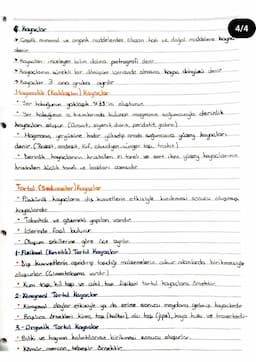 4/4
6. Kayaçlar
• Çeşitli mineral ve organik maddelerden oluşan katı ve doğal maddelere kayaç
denir.
• Kayaçları inceleyen bilim dalına petrografi denir.
• Kayaçların sürekli bir dönüşüm içerisinde olmasına kayaç döngüsü denir.
• Kayaçlar 3 ana gruba ayrılır
Magmatik (Katılaşım) Kayaçlar
• Yer kabuğunun yaklaşık
• Yer kabuğunun iç kısımlarında bulunan magmanın soğumasıyla derinlik
kayaçları oluşur (Granit, siyenit, diorit, peridotit, gabro)
• Magmanın yeryüzüne kadar yükselip orada soğumasına yüzey kayaçları
denir. (Bazalt, andezit, tüf, obsidyen, sünger taşı, trakit)
• Derinlik kayaçlarının kristalleri iri taneli ve sert iken yüzey kayaçlarının
kristalleri küçük taneli ve bazıları camsıdır.
Tortul (Sedimanter) Kayaçlar
•
kayaçlardır.
• Tabakalı ve gözenekli yapıları vardır.
• İçlerinde fosil bulunur.
• Oluşum şekillerine göre üçe ayrılır.
1- Fiziksel (Kırıntılı) Tortul Kayaçlar
• Dış kuvvetlerin aşındırıp taşıdığı malzemelerin çukur alanlarda birikmesiyle
oluşurlar.
• Kum taşı, kil taşı ve çakıl taşı fiziksel tortul kayaçlara örnektir.
2- Kimyasal Tortul Kayaçlar
• Kimyasal olaylar etkisiyle ya da erime sonucu meydana gelmiş kayaçlardır.
• Başlıca örnekleri kireç taşı (kalker), alçı taşı (jips), kaya tuzu ve travertendir.
3- Organik Tortul Kayaçlar
• Bitki ve hayvan kalıntılarının birikmesi sonucu oluşurlar.
• Kömür, mercan, tebeşir örnektir.